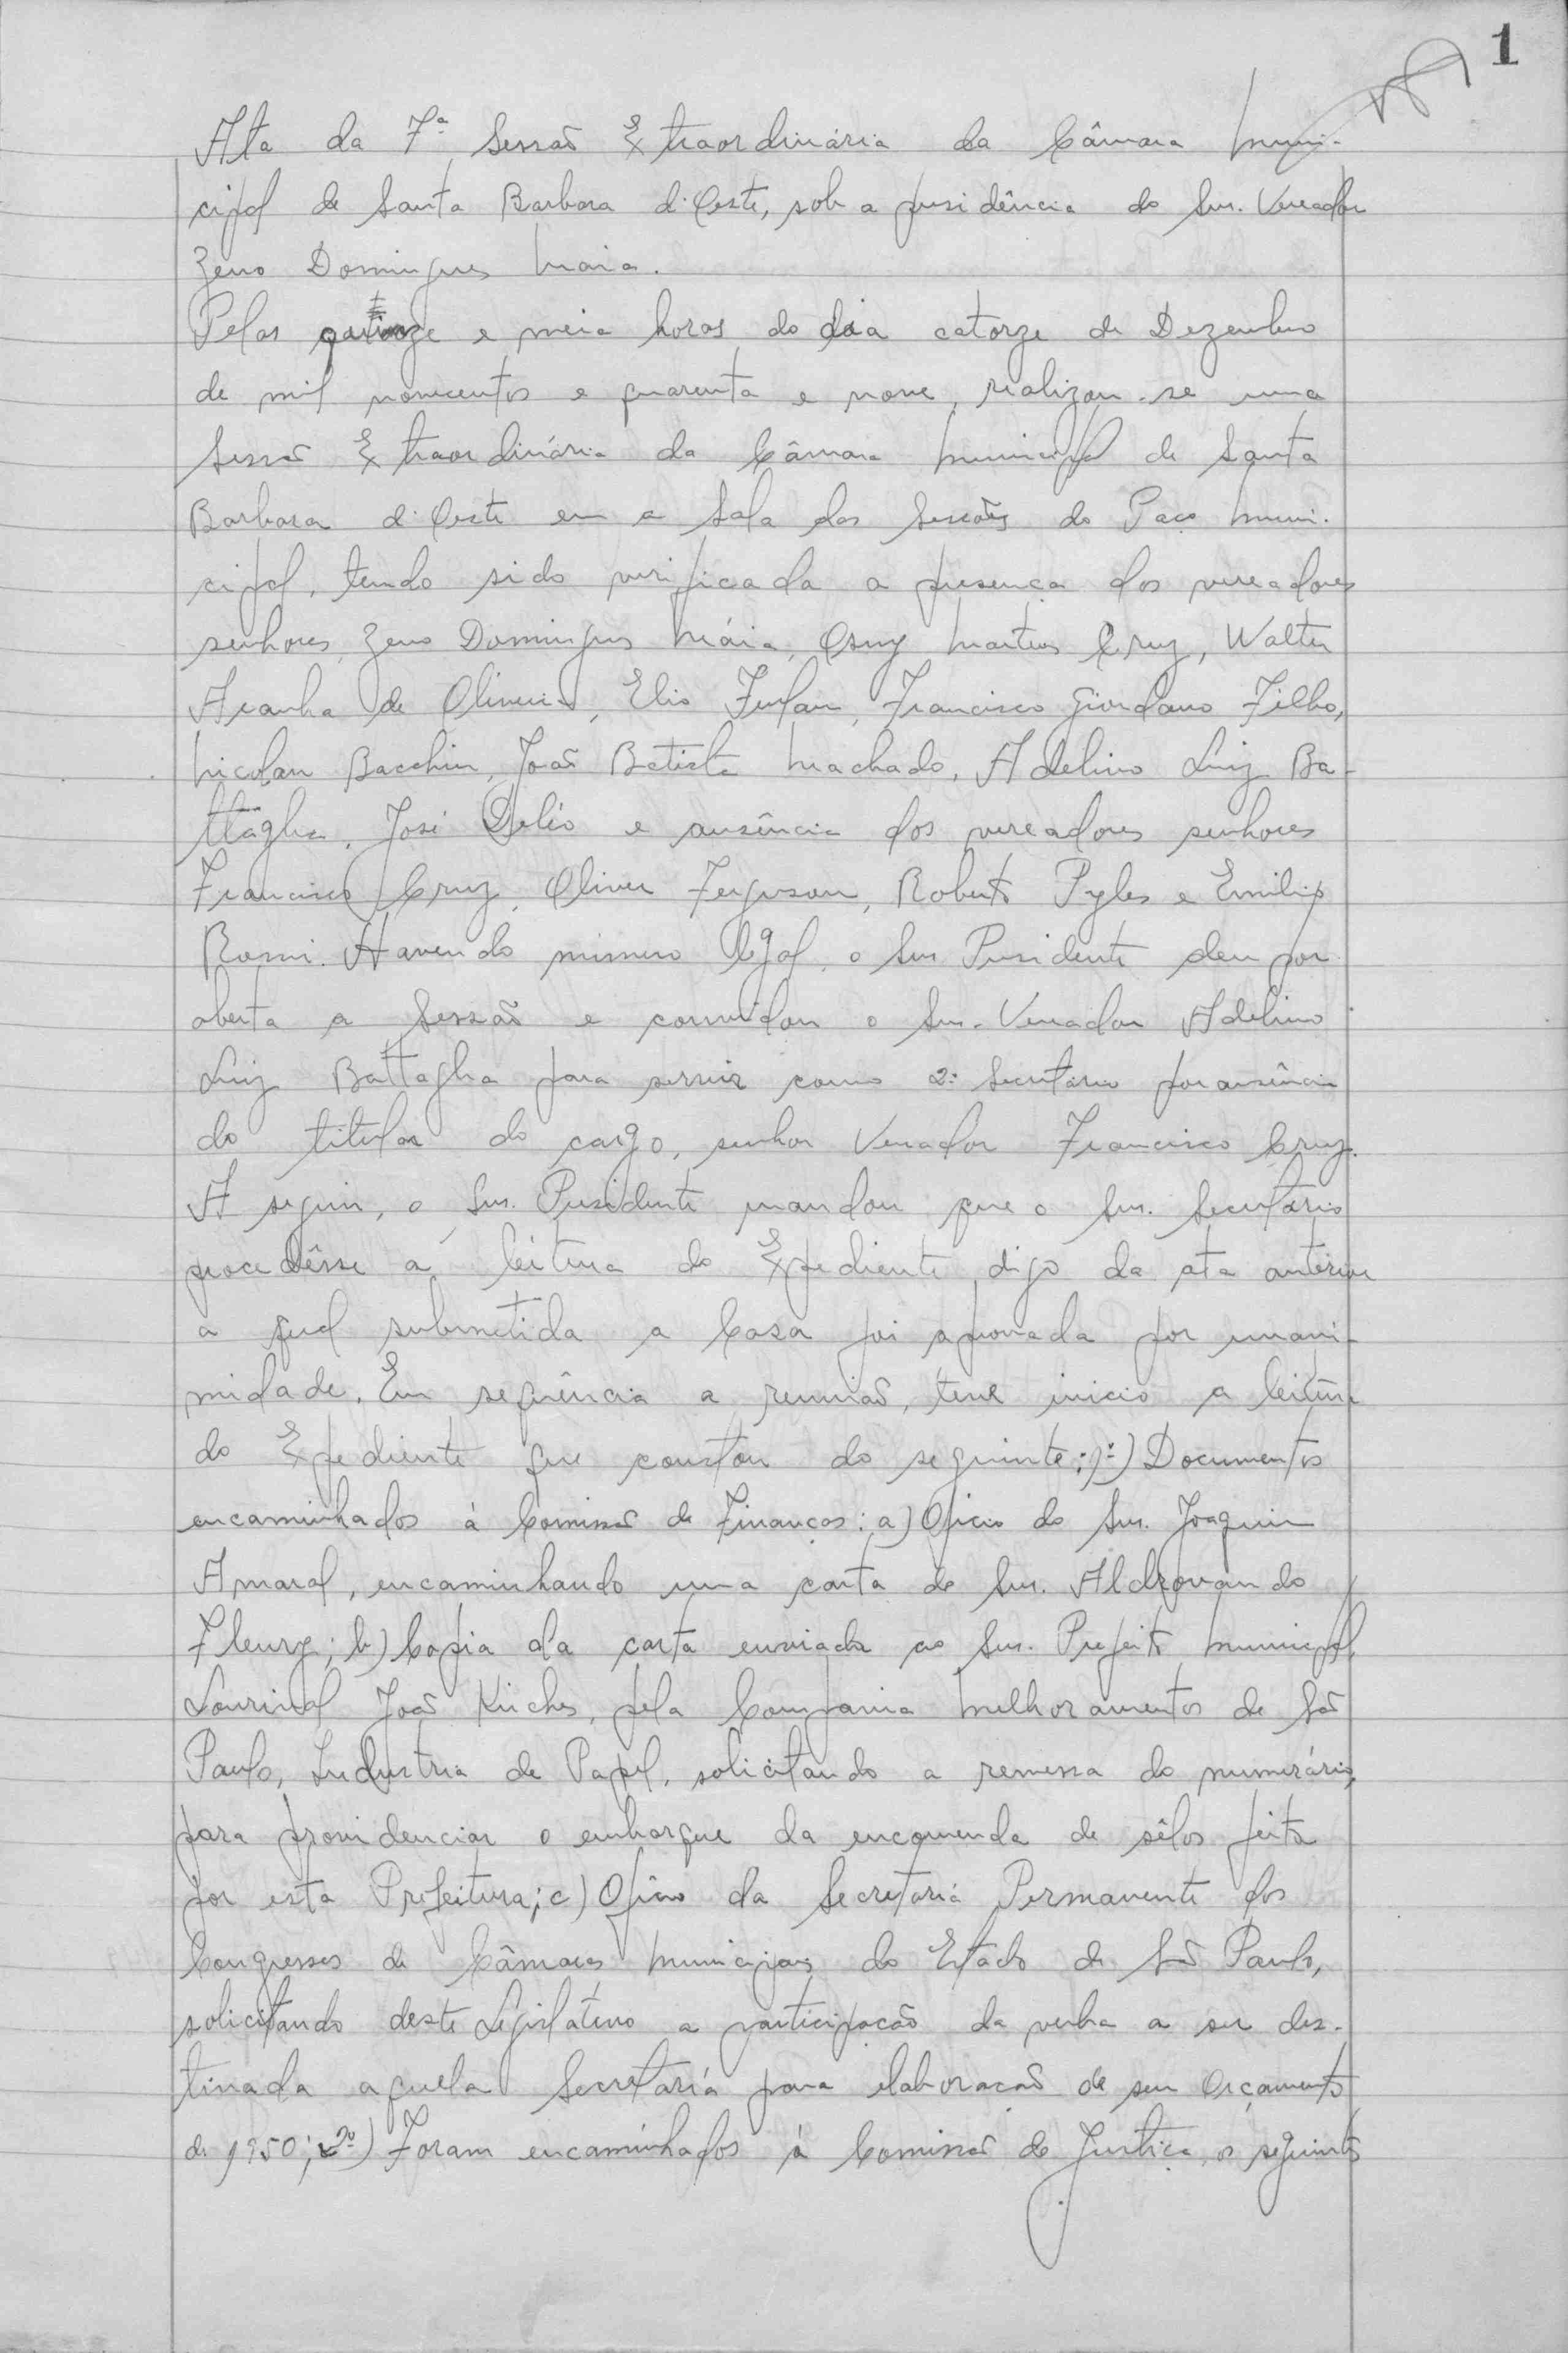 1
Ata da 7ª Sessão Extraordinária da Câmara Muni-
cipal de Santa Barbara d'Oeste, sob a presidência do Snr. Vereador
Zeno Domingues Maia.
Pelas e meia horas do dia catorze de Dezembro
de mil novecentos e quarenta e nove, realizou-se uma
Sessão Extraordinária da Câmara Municipal de Santa
Barbara d'Oeste em a Sala das Sessões do Paço Muni-
cipal, tendo sido verificada a presença dos vereadores
senhores, Zeno Domingues Máia, Osny Martins Cruz, Walter
Aranha de Oliveira, Elio Furlan, Francisco Giordano Filho,
Nicolau Bacchin, João Batista Machado, Adelino Luiz Ba-
ttaglia, José Deléo e ausência dos vereadores senhores
Francisco Cruz, Oliver Ferguson, Roberto Pyles e Emilio
Romi. Havendo número legal, o Snr. Presidente deu por
aberta a Sessão e convidou o Snr. Vereador Adelino
Luiz Battaglia para servir como 2º Secretário por ausência
do titular do cargo, senhor Vereador Francisco Cruz.
A seguir, o Snr. Presidente mandou que o Snr. Secretário
procedêsse a leitura do Expediente, digo da ata anterior
a qual submetida a Casa foi aprovada por unani-
midade. Em sequência a reunião, teve inicio a leitura
do Expediente que constou do seguinte: 1º) Documentos
encaminhados á Comissão de Finanças: a) Oficio do Snr. Joaquim
Amaral, encaminhando uma carta do Snr. Aldrovando
Fleury; b) Copia da carta enviada ao Snr. Prefeito Municipal,
Lourival João Kirches, pela Compania Melhoramentos de São
Paulo, Industria de Papel, solicitando a remessa do numerário,
para providenciar o embarque da encomenda de sêlos feita
por esta Prefeitura; c) Ofício da Secretaria Permanente dos
Congressos de Câmaras Municipais do Estado de São Paulo,
solicitando deste Legislativo a participação da verba a ser des-
tinada aquela Secretaría para elaboração de seu Orçamento
de 1950; 2º) Foram encaminhados á Comissão de Justiça, os seguintes